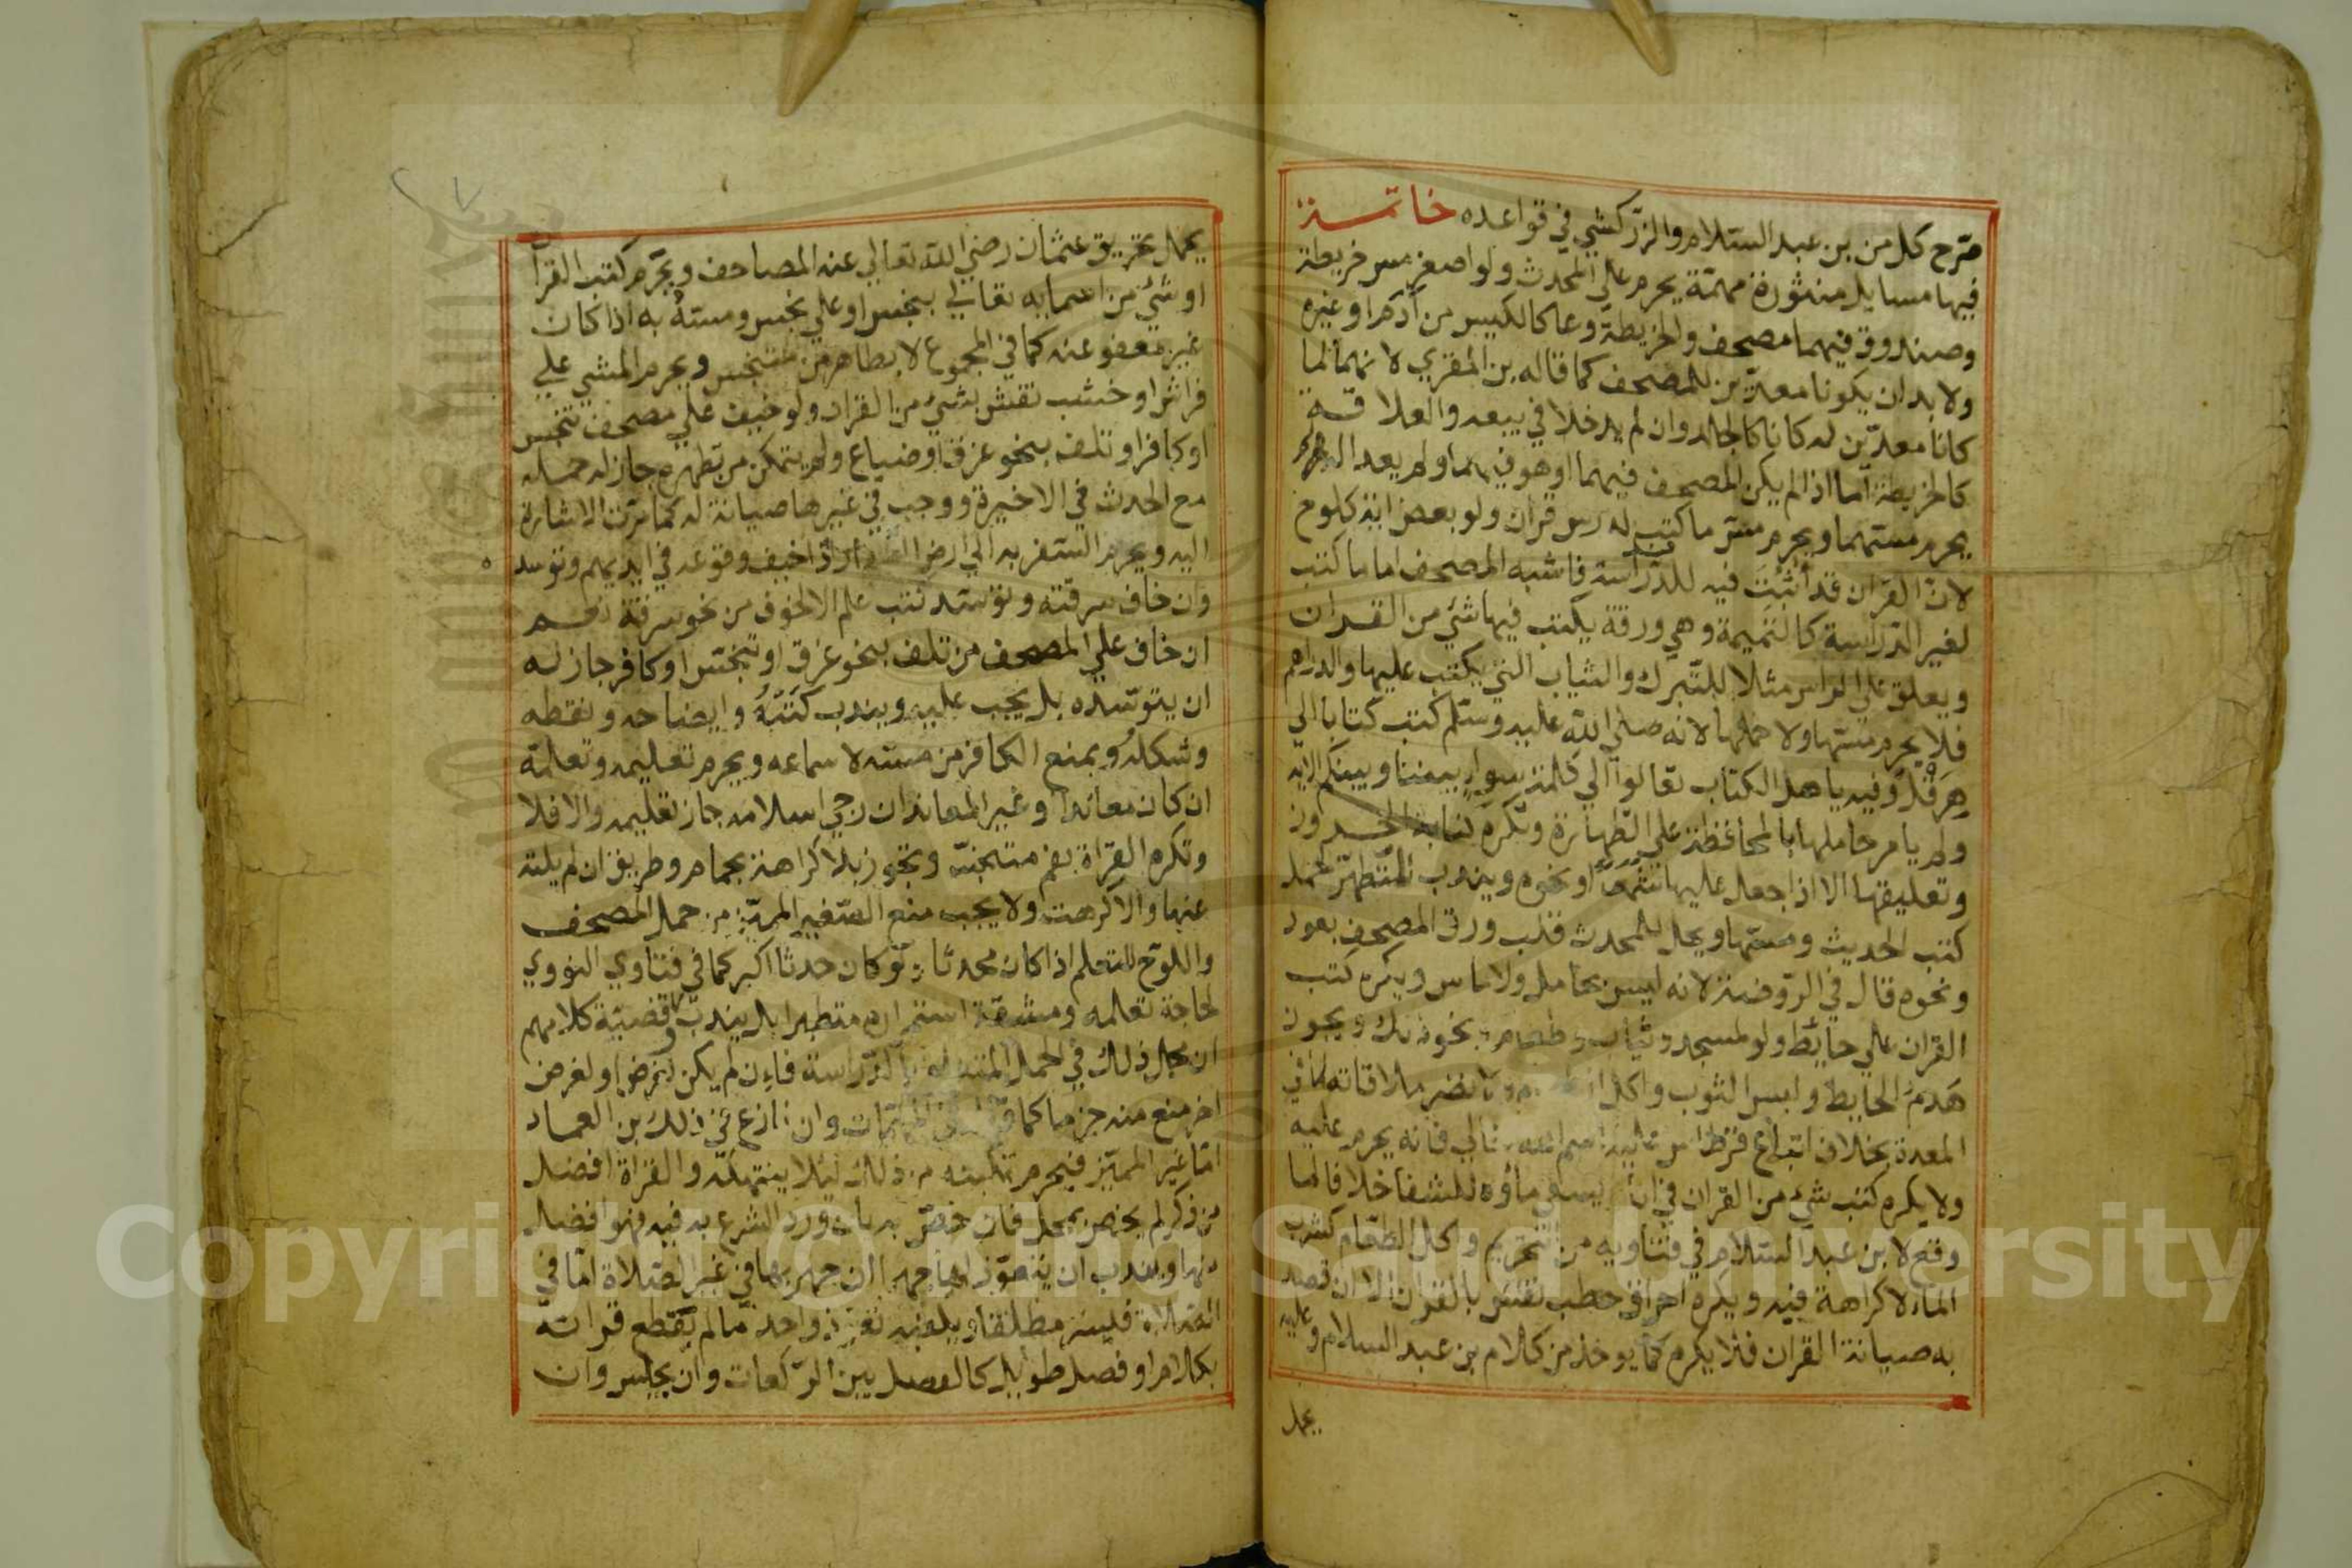 صرح كل من بن عبد السلام والزركشي في قواعده خاتمة
فيها مسايل منثورة مهمة يحرم على المحدث ولو اصغر مس خريطة
وصندوق فيهما مصحف والخريطة وعا كالكيس من أدم او غيره
ولا بد ان يكونا معدين للمصحف كما قاله بن المقري لانهما لما
كانا معدين له كانا كالجلد وان لم يدخلا في بيعه والعلاقة
كالخريطة اما اذا لم يكن المصحف فيهما او هو فيهما ولم يعدا له لم
يحرم مسهما ويحرم مس ما كتب لدرس قران ولو بعض اية كلوح
لان القران قد أثبت فيه للدراسة فاشبه المصحف اما ما كتب
لغير الدراسة كالتميمة وهي ورقة يكتب فيها شي من القران
ويعلق على الراس مثلا للتبرك والثياب التي يكتب عليها والدراهم
فلا يحرم مسها ولا حملها لانه صلى الله عليه وسلم كتب كتابا الي
هرقل وفيه ياهل الكتاب تعالوا الي كلمة سواء بيننا وبينكم الاية
ولم يامر حاملها بالمحافظة علي الطهارة وتكره كتابة الحروز
وتعليقها الا اذا جعل عليها شمعا او نحوه ويندب للمتطهر لحمل
كتب الحديث ومسها ويحل للمحدث قلب ورق المصحف بعود
ونحوه قال في الروضة لانه ليس بحامل ولا ماس ويكره كتب
القران علي حائط ولو لمسجد وثياب وطعام ونحو ذلك ويجوز
هدم الحايط ولبس الثوب واكل الطعام ولا تضر ملاقاته ما في
المعدة بخلاف ابتلاع قرطاس عليه اسم الله تعالي فانه يحرم عليه
ولا يكره كتب شي من القران في اناء ليسقي ماؤه للشفا خلافا لما
وقع لابن عبد السلام في فتاويه من التحريم واكل الطعام كشرب
الماء لا كراهة فيه ويكره احراق خطب نقش بالقران الا ان قصد
به صيانة القران فلا يكره كما يوخذ من كلام بن عبد السلام وعليه
يحمل
يحمل تحريق عثمان رضي الله تعالي عنه المصاحف ويحرم كتب القرأ
او شي من اسمايه تعالي بنجس او علي نجس ومسه به اذا كان
غير معفو عنه كما في المجموع لا بطاهر من متنجس ويحرم المشي علي
فراش او خشب نقش بشي من القران ولو خيف علي مصحف تنجس
او كافر او تلف بنحو غرق او ضياع ولم يتمكن من تطهره جاز له حمله
مع الحدث في الاخيرة ووجب في غيرها صيانة له كما مرت الاشارة
اليه ويحرم السفر به الي ارض الكفار اذا خيف وقوعه في ايديهم وتوسد
وان خاف سرقته وتوسد كتب علم الا لخوف من نحو سرقة نعم
ان خاف علي المصحف من تلف بنحو غرق او تنجس او كافر جاز له
ان يتوسده بل يجب عليه ويندب كتبه وايضاحه ونقطه
وشكله ويمنع الكافر من مسه لا سماعه ويحرم تعليمه وتعلمه
ان كان معاندا وغير المعاند ان رجي اسلامه جاز تعليمه والا فلا
وتكره القراة بفم متنجس وتجوز بلا كراهة بحمام وطريق ان لم يلته
عنها والا كرهت ولا يجب منع الصغير المميز من حمل المصحف
واللوح للتعلم اذا كان محدثا ولو كان حدثا اكبر كما في فتاوي النووي
لحاجة تعلمه ومشقة استمراره متطهرا بل يندب وقضية كلامهم
ان محل ذلك في الحمل المتعلق بالدراسة فاءن لم يكن لغرض او لغرض
اخر منع منه جزما كما في المهمات وان نازع في ذلك بن العماد
اما غير المميز فيحرم تمكينه من ذلك ليلا ينتهكه والقراة افضل
من ذكر لم يخص بمحل فان خص به بان ورد الشرع به فيه فهو افضل
منها ويندب ان يتعوذ لها جهرا ان جهر بها في غير الصلاة اما في
الصلاة فيسر مطلقا ويكفيه تعوذ واحد ما لم يقطع قراته
بكلام او فصل طويل كالفصل بين الركعات وان يجلس وان
Copyright © King Saud University